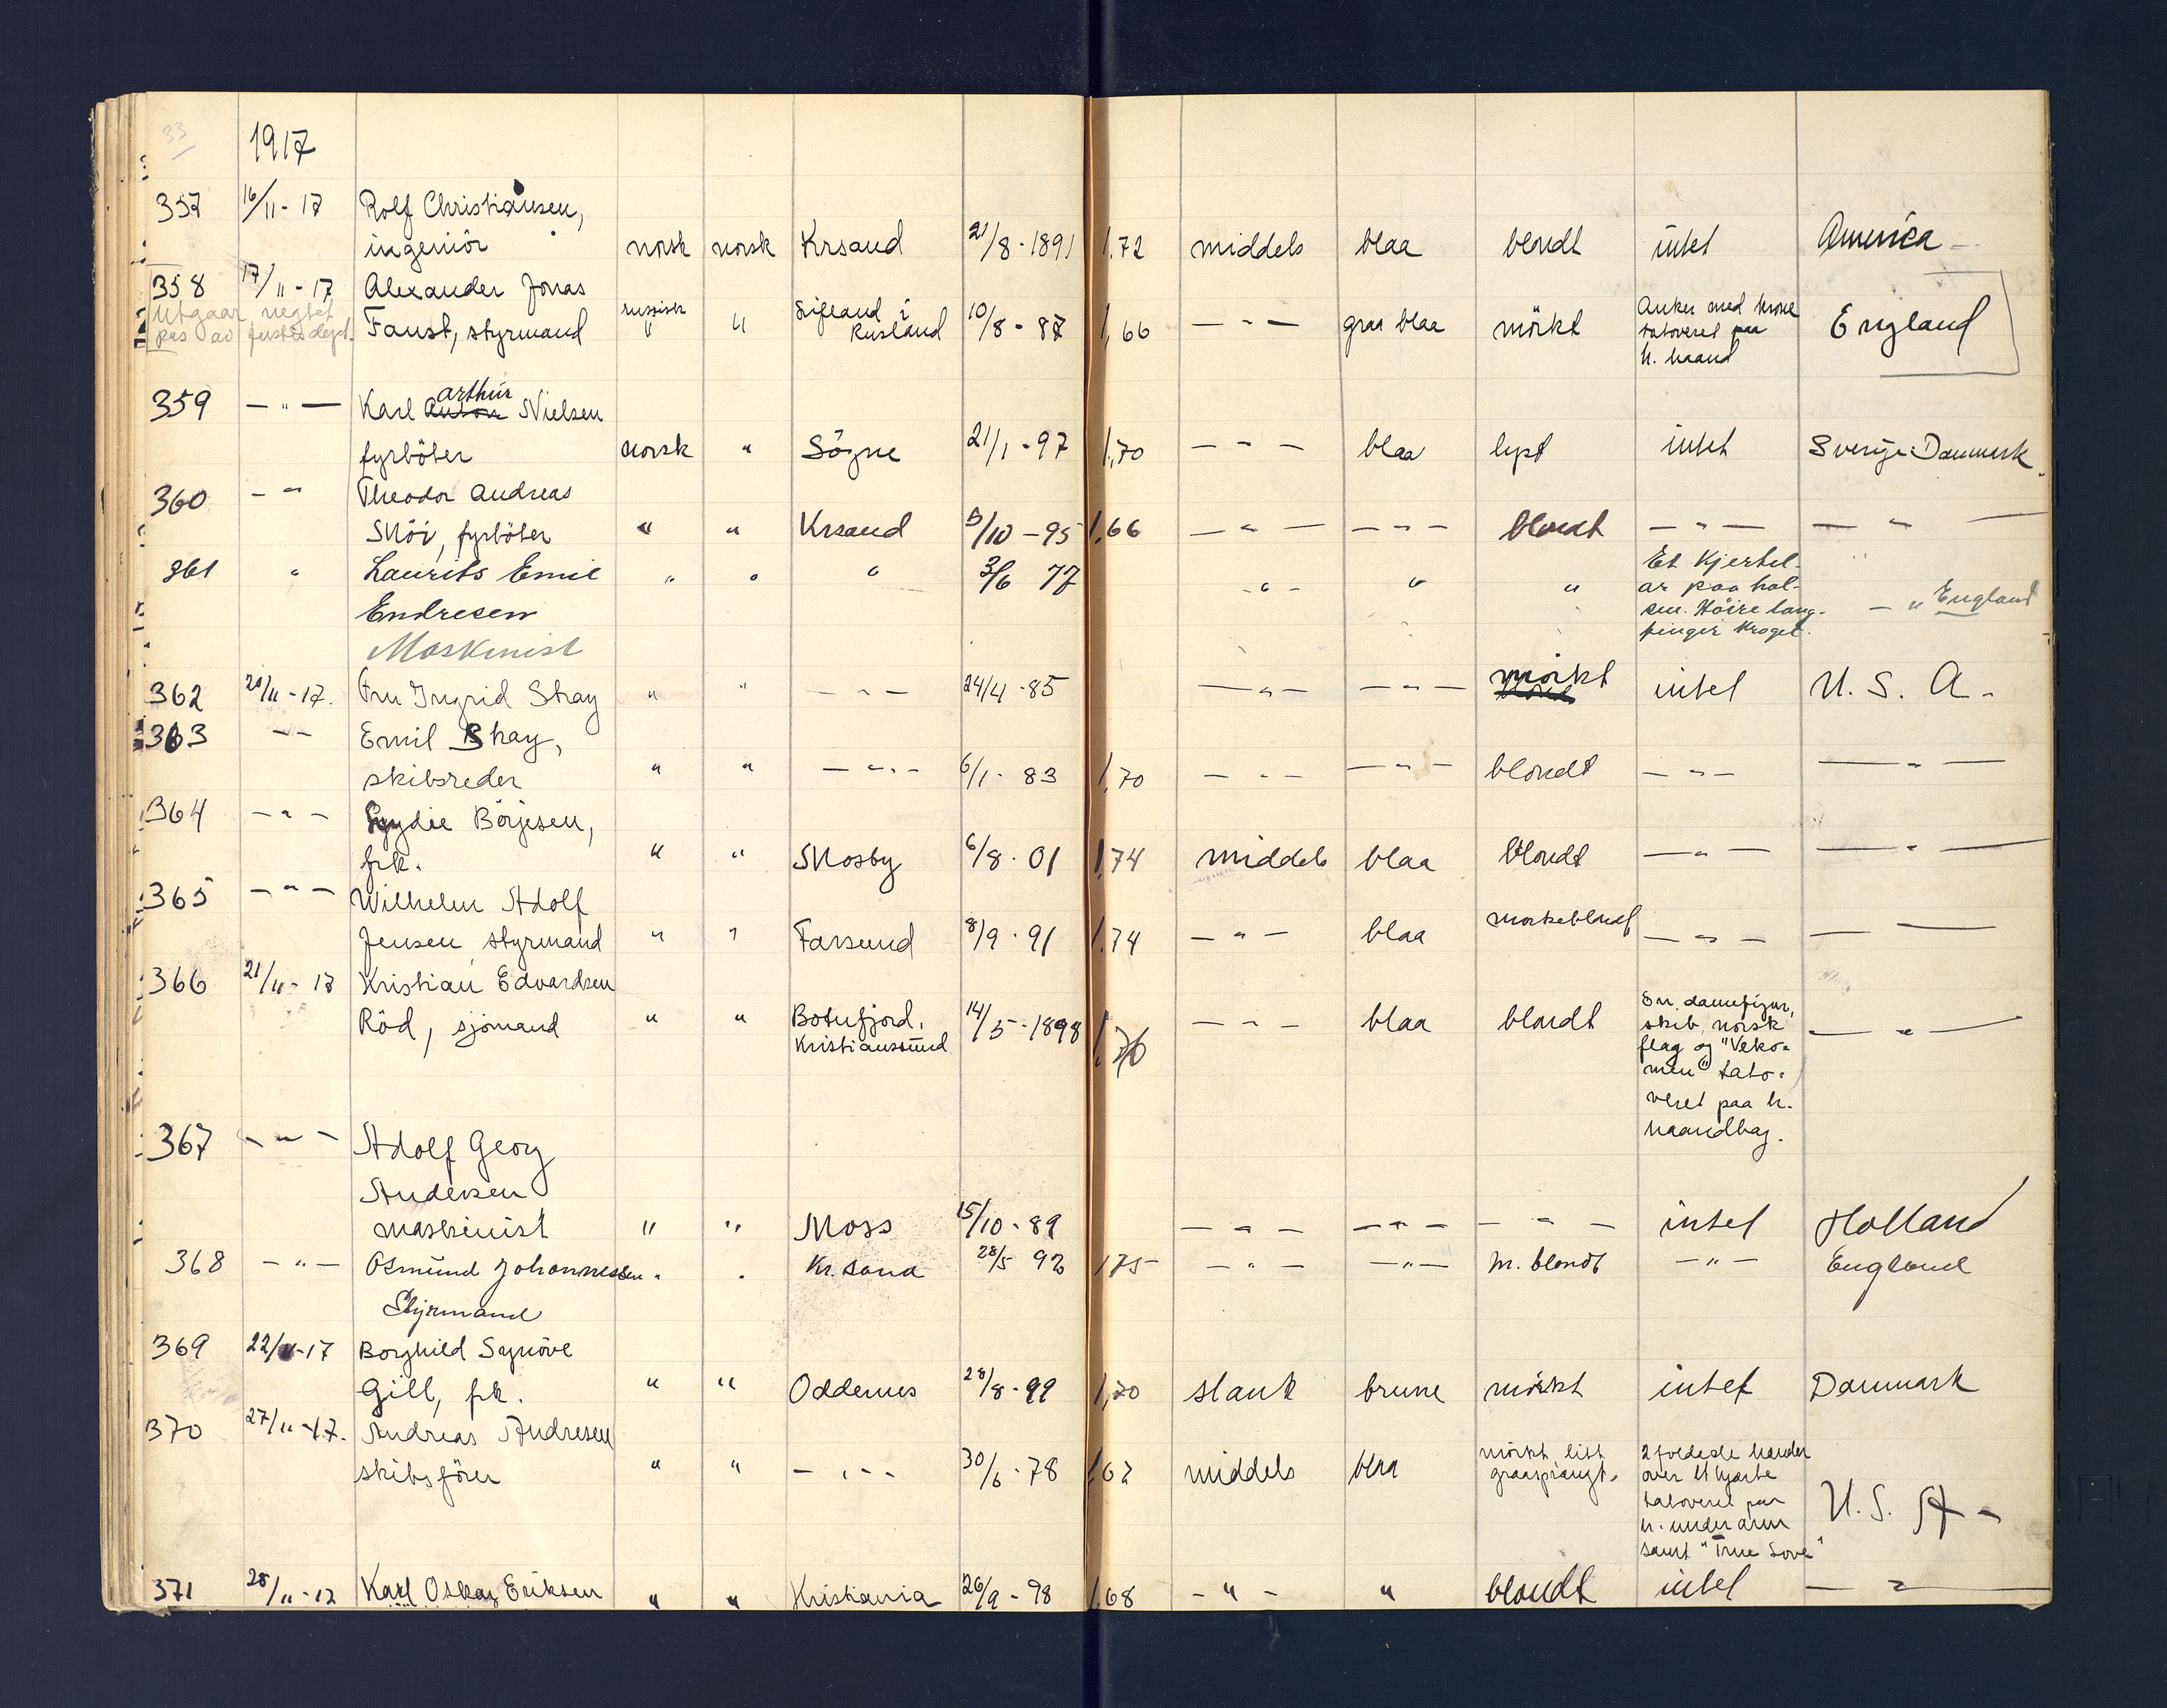 33
1917
357 16/11-17 Rolf Christiansen,
ingeniör norsk norsk Krsand 21/8-1891 1.72 middels blaa blondt intet America
358 17/11-17 Alexander Jonas
Utgaar, negtet
pas av justisdept. Faust, styrmand russisk " " Lifland i Rusland 10/8-87 1,66 — " — graa blaa mörkt Anker med krone
tatoveret paa
h. haand England
359 — " — Karl Anton arthur Nielsen
fyrböter norsk " Sögne 21/1-97 1,70 — " — blaa lyst intet Sverige Danmark
360 — " Theodor Andreas
Moi, fyrböter " " Krsand 5/10-95 1.66 — " — — " — blondt — " — — " —
361 " Laurits Emil " " " 3/6 77 - " - " " Et Kjertel-
ar paa hal-
sen. Höire lang-
finger kroget. — " England
Endresen
Maskinist
362 20/11-17. Fru Ingrid Stray " " — " — 24/4-85 — " — — " — mörkt intet U.S.A.
363 — " — Emil Stray,
skibsreder " " — " — 6/1-83 1,70 — " — — " — blondt — " — — " —
364 — " — Lydie Börjesen,
frk. " " Mosby 6/8-01 1,74 middels blaa blondt — " — — " —
365 — " — Wilhelm Adolf
Jensen, styrmand " " Farsund 8/9-91 1.74 — " — blaa morkeblondt — " — — —
366 21/11-17 Kristian Edvardsen
Röd, sjömand " " Botnfjord,
Kristianssund 14/5-1898 1.70 — " — blaa blondt En damefigur,
skib, norsk
flag og "Velko-
men" tato-
veret paa h.
haandbag. — " —
367 — " — Adolf Georg
Andersen
maskinist " " Moss 15/10-89 — " — — " — — " — intet Holland
368 — " — Osmund Johannessen " " Kr.sand 28/5 92 175 — " — — " — m. blondt — " — England
Styrmand
369 22/11-17 Borghild Synöve
Gill, frk. " " Oddernes 28/8-99 1,70 slank brune mörkt intet Danmark
370 27/11-17. Andreas Andresen
skibsförer " " — " — 30/6-78 1,67 middels blaa mörkt litt
graasprængt. 2 foldede hænder
over et hjærte
tatoveret paa
h. under arm
samt "True Love" U.S.A.
371 28/11-17 Karl Oskar Eriksen " " Kristiania 26/9-98 1.68 - " - " blondt intet — " —